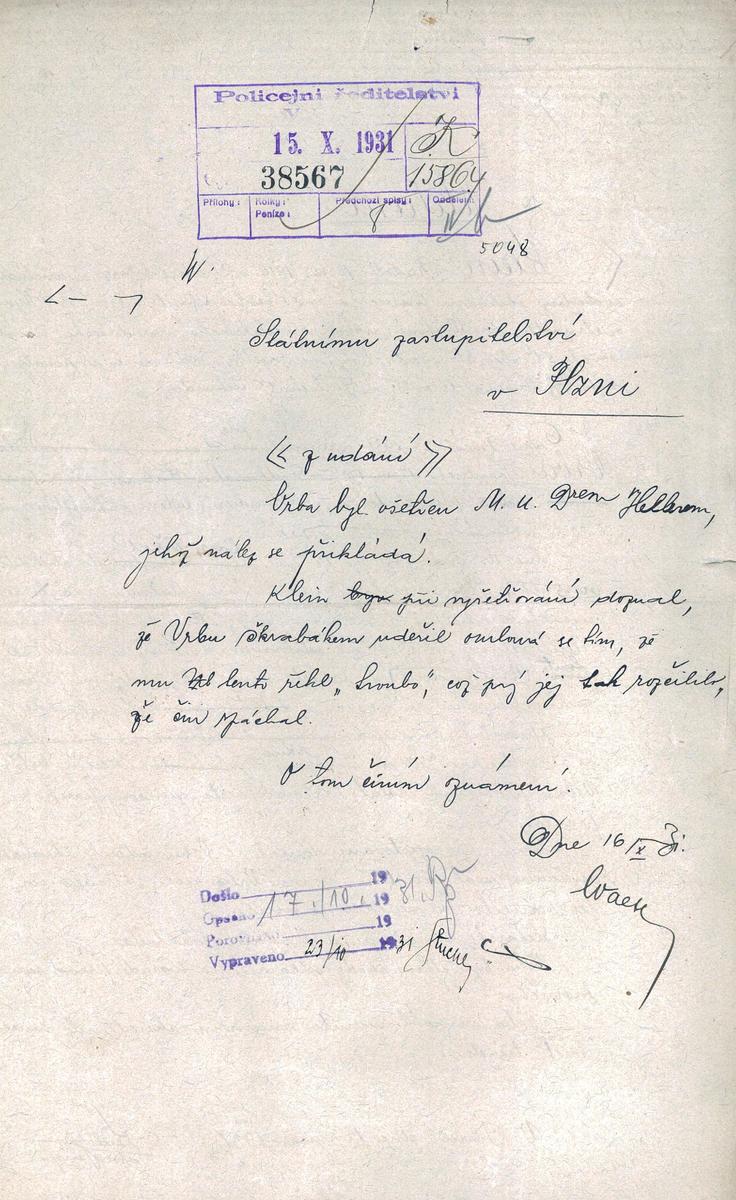 Policejní ředitelství
V
15. X. 1931
K
38567
15864
Přílohy:
Kolky:
Peníze:
Předchozí spisy:
Odděleni
5048
W.
Státnímu zastupitelství
v Plzni
« z udání »
Vrba byl ošetřen M. U. Drem Hellerem,
jehož nález se přikládá.
Klein při vyšetřování doznal,
že Vrbu škrabákem udeřil omlouvá se tím, že
mu tento řekl „ ", což prý jej tak rozčílilo,
že čin spáchal.
O tom činím oznámení.
Dne 16/X 31.
Došlo 19
Opsáno 17./10. 1931.
Porovnáno 19
Vypraveno 23/10 1931